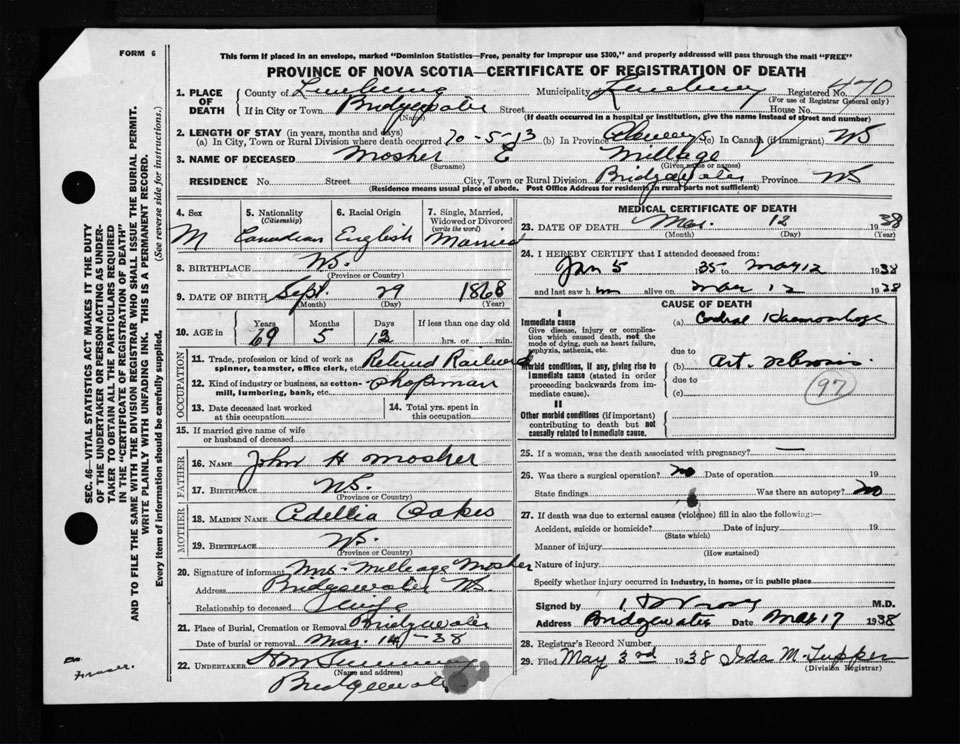 FORM 6
This form if placed in an envelope, marked "Dominion Statistics—Free, penalty for improper use $300," and properly addressed will pass through the mail "FREE"
PROVINCE OF NOVA SCOTIA—CERTIFICATE OF REGISTRATION OF DEATH
1. PLACE OF DEATH
County of Lunenburg Municipality of Lunenburg Registered No. 470
(For use of Registrar General only)
If in City or Town Bridgewater Street House No.
(Name) (If death occurred in a hospital or institution, give the name instead of street and number)
2. LENGTH OF STAY (in years, months and days)
(a) In City, Town or Rural Division where death occurred (b) In Province Always (c) In Canada (if immigrant) NS
3. NAME OF DECEASED Mosher E Millage
(Surname) (Given name or names)
RESIDENCE No. Street City, Town or Rural Division Bridgewater Province NS
(Residence means usual place of abode. Post Office Address for residents in rural parts not sufficient)
4. Sex M
5. Nationality (Citizenship) Canadian
6. Racial Origin English
7. Single, Married, Widowed or Divorced (write the word) Married
8. BIRTHPLACE NS.
(Province or Country)
9. DATE OF BIRTH Sept. 29 1868
(Month) (Day) (Year)
10. AGE in Years Months Days If less than one day old
69 5 13 hrs. or min.
OCCUPATION
11. Trade, profession or kind of work as spinner, teamster, office clerk, etc. Retired Railway
12. Kind of industry or business, as cotton-mill, lumbering, bank, etc. Shopman
13. Date deceased last worked at this occupation
14. Total yrs. spent in this occupation
15. If married give name of wife or husband of deceased
FATHER
16. NAME John H Mosher
17. BIRTHPLACE NS.
(Province or Country)
MOTHER
18. MAIDEN NAME Adellia Oakes
19. BIRTHPLACE NS.
(Province or Country)
20. Signature of informant Mrs. Milleage Mosher
Address Bridgewater NS.
Relationship to deceased Wife
21. Place of Burial, Cremation or Removal Bridgewater
Date of burial or removal Mar. 14 - 38
22. UNDERTAKER
(Name and address)
Bridgewater
MEDICAL CERTIFICATE OF DEATH
23. DATE OF DEATH Mar. 12 1938
(Month) (Day) (Year)
24. I HEREBY CERTIFY that I attended deceased from:
Jan 5 1935 to Mar 12 1938
and last saw him alive on Mar 12 1938
CAUSE OF DEATH
I
Immediate cause
Give disease, injury or complication which caused death, not the mode of dying, such as heart failure, asphyxia, asthenia, etc.
(a) Cerebral Haemorrhage
due to
Morbid conditions, if any, giving rise to immediate cause (stated in order proceeding backwards from immediate cause).
(b) Art. Sclerosis.
due to
(c)
(97)
II
Other morbid conditions (if important) contributing to death but not causally related to immediate cause.
25. If a woman, was the death associated with pregnancy? —
26. Was there a surgical operation? no Date of operation 19
State findings Was there an autopsy? no
27. If death was due to external causes (violence) fill in also the following:—
Accident, suicide or homicide? Date of injury 19
(State which)
Manner of injury
(How sustained)
Nature of injury
Specify whether injury occurred in industry, in home, or in public place
Signed by M.D.
Address Bridgewater Date Mar 17 1938
28. Registrar's Record Number
29. Filed May 3rd 1938 Ida M. Tupper
(Division Registrar)
SEC. 46—VITAL STATISTICS ACT MAKES IT THE DUTY
OF THE UNDERTAKER OR PERSON ACTING AS UNDER-
TAKER TO OBTAIN ALL THE PARTICULARS REQUIRED
IN THE "CERTIFICATE OF REGISTRATION OF DEATH"
AND TO FILE THE SAME WITH THE DIVISION REGISTRAR WHO SHALL ISSUE THE BURIAL PERMIT.
WRITE PLAINLY WITH UNFADING INK. THIS IS A PERMANENT RECORD.
Every item of information should be carefully supplied. (See reverse side for instructions.)